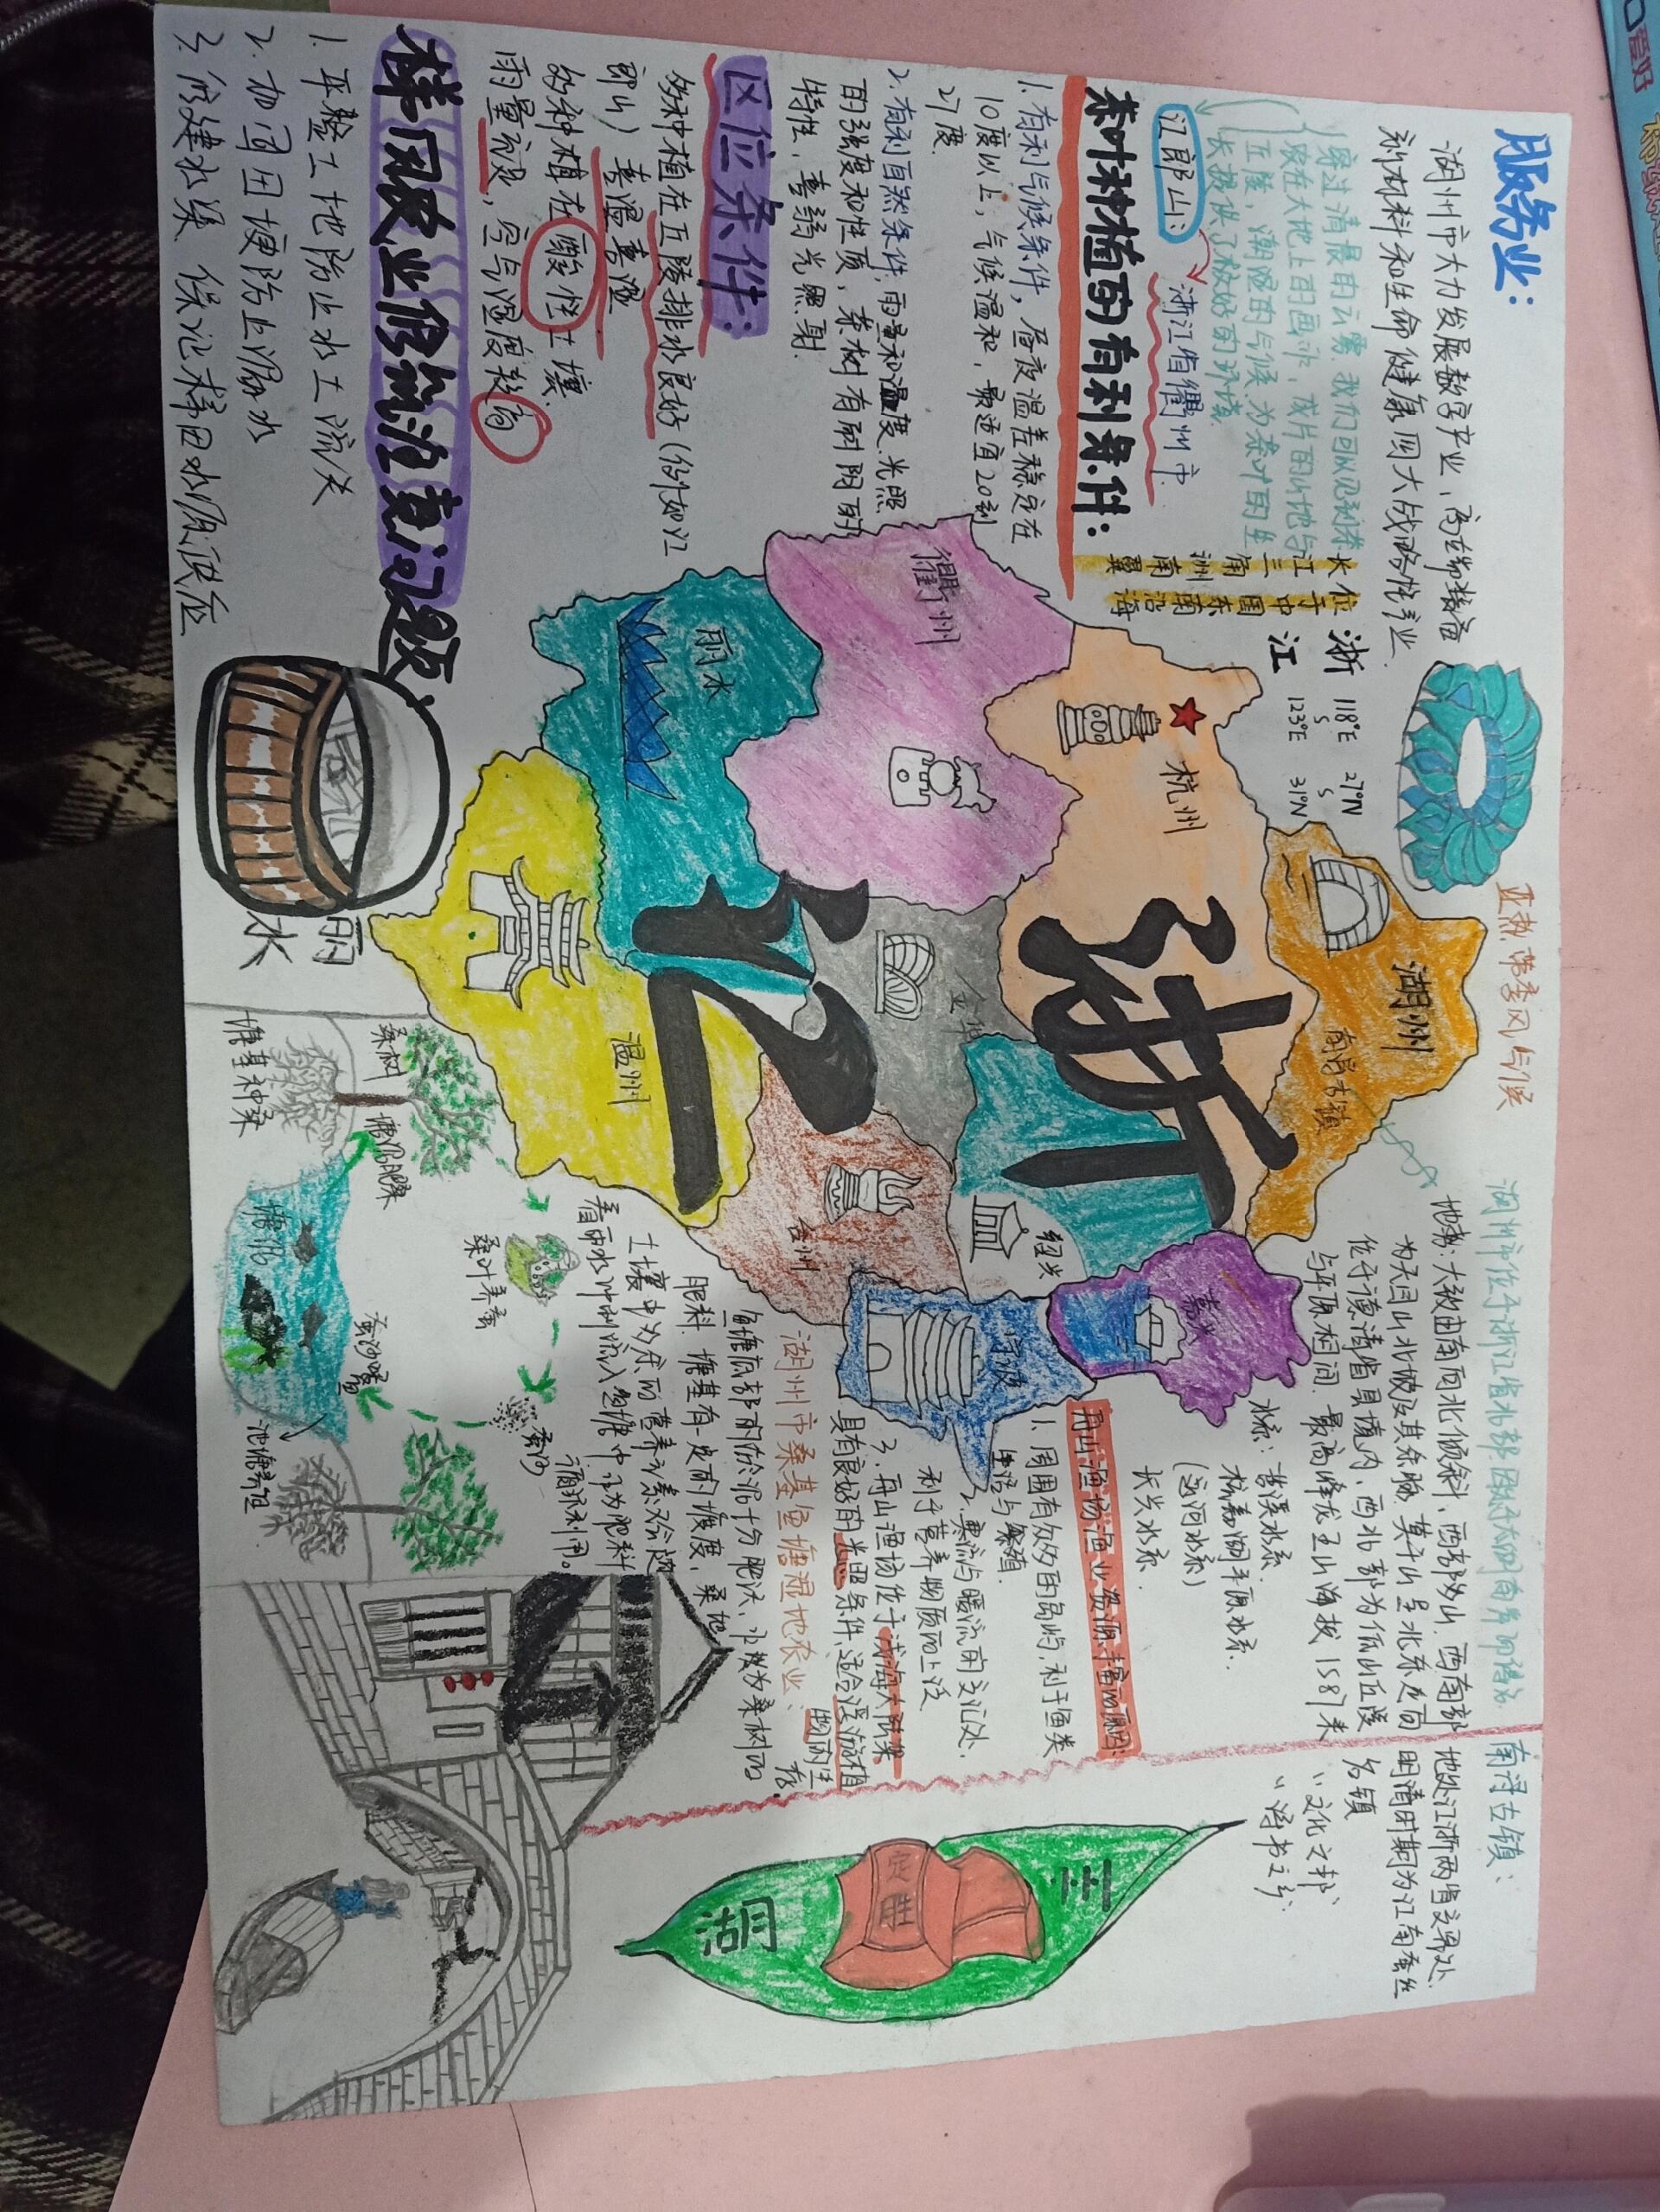 服务业：
湖州市大力发展数字产业、高端装备
新材料和生命健康四大战略性产业.
穿过清晨的云雾我们可以见到茶
农在大地上的画卷，成片的山地与
丘陵、潮湿的气候为茶叶的生
长提供了极好的环境.
江郎山：
浙江省衢州市.
茶叶种植的有利条件：
1. 有利气候条件，昼夜温差稳定在
10度以上，气候温和，最适宜20到
27度.
2. 有利自然条件，雨量和温度、光照
的强度和性质，茶树有耐阴的
特性，喜弱光照射.
区位条件：
多种植在丘陵排水良好（例如江
郎山）喜温喜湿
多种植在酸性土壤.
雨量充沛，空气湿度较高
梯田农业修筑注意问题
1. 平整土地防止水土流失
2. 加固田埂防止漏水
3. 修建水渠 保证梯田水源供应
长江三角洲南翼
位于中国东南沿海
浙江
118°E
123°E
27°N
31°N
亚热带季风气候
衢州
丽水
杭州
湖州
南浔古镇
金华
温州
台州
绍兴
嘉兴
宁波
浙
江
丽水
湖州市位于浙江省北部 因处于太湖南岸而得名
地势：大致由南向北倾斜、西部多山. 西南部
为天目山北坡及其余脉. 莫干山呈北东走向
位于德清省县境内、西北部为低山丘陵
与平原相间. 最高峰龙王山海拔1587米
水系：苕溪水系.
杭嘉湖平原水系.
(运河水系)
长兴水系.
舟山渔场渔业资源丰富的原因：
1. 周围有众多的岛屿，利于鱼类
生活与繁殖.
2. 寒流与暖流的交汇处，
利于营养物质而上泛
3. 舟山渔场位于浅海大陆架
具有良好的光照条件、适合浮游植
物的生
长.
湖州市桑基鱼塘湿地农业：
鱼塘底部的淤泥十分肥沃，
肥料. 塘基有一定的坡度，桑地
土壤中为多的营养元素又会随
着雨水冲刷流入鱼塘中
循环利用。
桑树
塘基种桑
塘泥肥桑
桑叶养蚕
蚕沙
蚕沙喂鱼
塘泥
南浔古镇：
地处江浙两省交界处.
明清时期为江南蚕丝
名镇
“文化之邦、
“诗书之乡
定
胜
湖